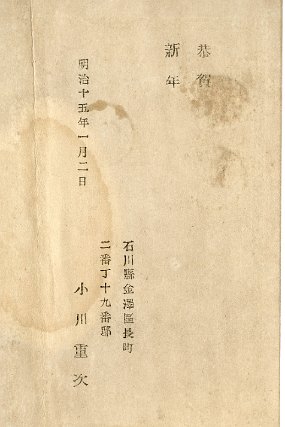 恭賀
新年
明治十五年一月二日
石川縣金澤區長町
二番丁十九番邸
小川重次